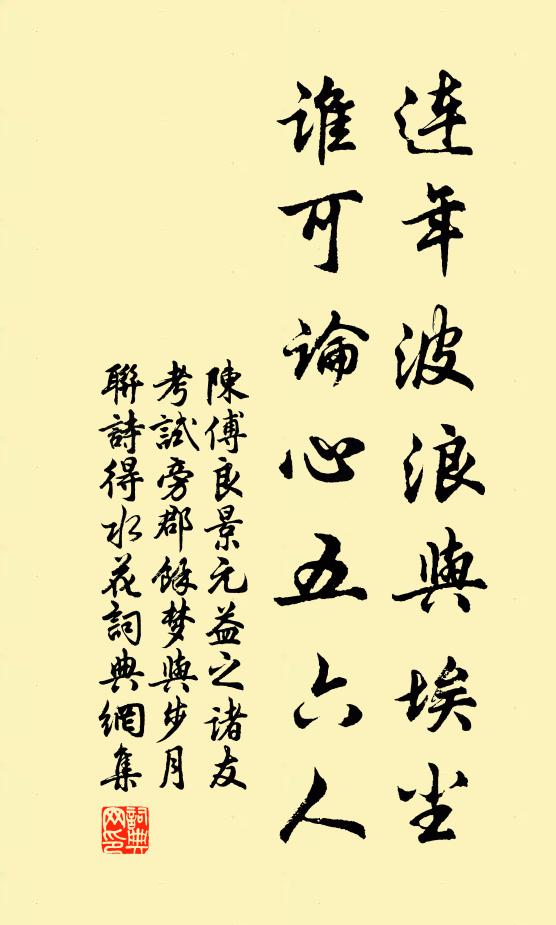 連年波浪與埃尘
誰可論心五六人
陳傅良景元益之諸友
考試旁郡餘梦與步月
聯詩得水花詞典網集
詞典网印